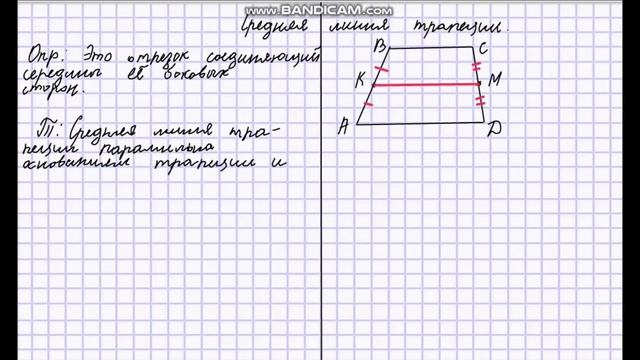 www.BANDICAM.com
Средняя линия трапеции.
Опр: Это отрезок соединяющий
середины её боковых
сторон.
Т: Средняя линия тра-
пеции паралельна
основаниям трапеции и
B C
K M
A D